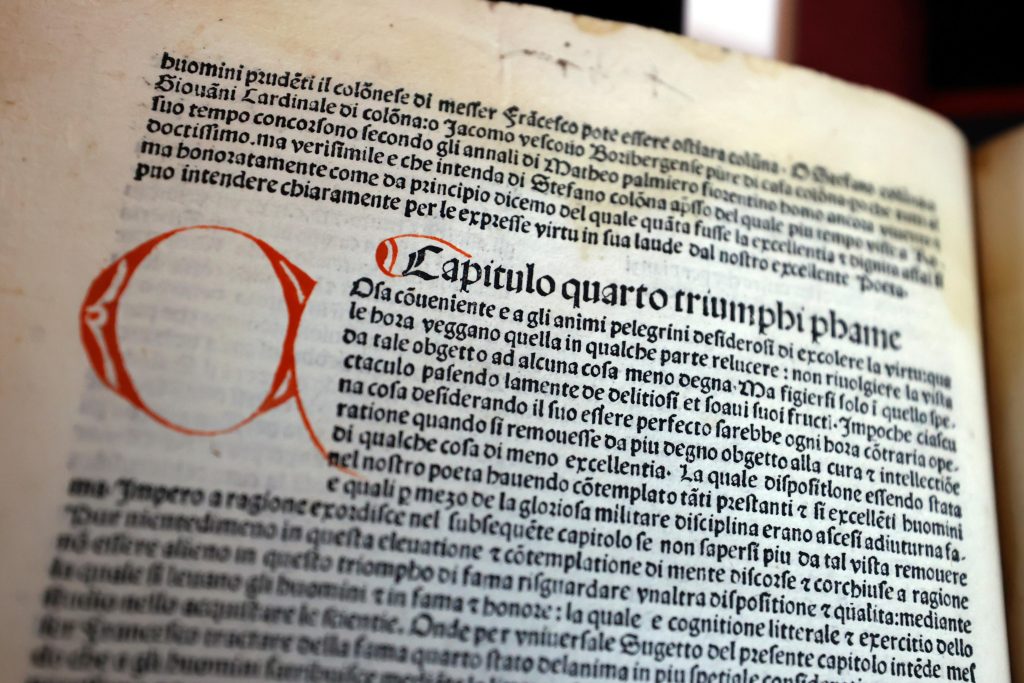 huomini prudẽti il colõnese di messer Frãcesco pote essere ostiara colũna. O
Giouãni Cardinale di colõna: o Jacomo vescouo Bozibergense pure di casa colõna: po che
suo tempo concorsono secondo gli annali di Matheo palmiero fiorentino homo ancora
doctissimo. ma verisimile e che intenda di Stefano colõna apſſo del quale piu tempo visse a
ma honoratamente come da principio dicemo del quale quãta fusse la excellentia ⁊ dignita assai si
puo intendere chiaramente per le expresse virtu in sua laude dal nostro excellente Poeta.
Capitulo quarto triumphi phame
Q Osa cõueniente e a gli animi pelegrini desiderosi di excolere la virtu: qua
le hora veggano quella in qualche parte relucere: non riuolgiere la vista
da tale obgetto ad alcuna cosa meno degna. Ma figiersi solo ĩ quello spe-
ctaculo pasendo lamente de delitiosi et soaui suoi fructi. Impoche ciascu
na cosa desiderando il suo essere perfecto sarebbe ogni hora cõtraria ope-
ratione quando si remouesse da piu degno obgetto alla cura ⁊ intellectiõe
di qualche cosa di meno excellentia. La quale dispositlone essendo stata
nel nostro poeta hauendo cõtemplato tãti prestanti ⁊ si excellẽti huomini
e quali ꝑ mezo de la gloriosa militare disciplina erano ascesi adiuturna fa-
ma. Impero a ragione exordisce nel subsequẽte capitolo se non sapersi piu da tal vista remouere
Pur nientedimeno in questa eleuatione ⁊ cõtemplatione di mente discorse ⁊ corchiuse a ragione
nõ essere alieno in questo triompho di fama risguardare vnaltra dispositione ⁊ qualita: mediante
la quale si leuano gli huomini ⁊ in fama ⁊ honore: la quale e cognitione litterale ⁊ exercitio dello
studio nello acquistare le scientie. Onde per vniuersale Sugetto del presente capitolo intẽde mes
ser Francesco tractare della fama quarto stato delanima in piu spetiale
do che a gli huomini